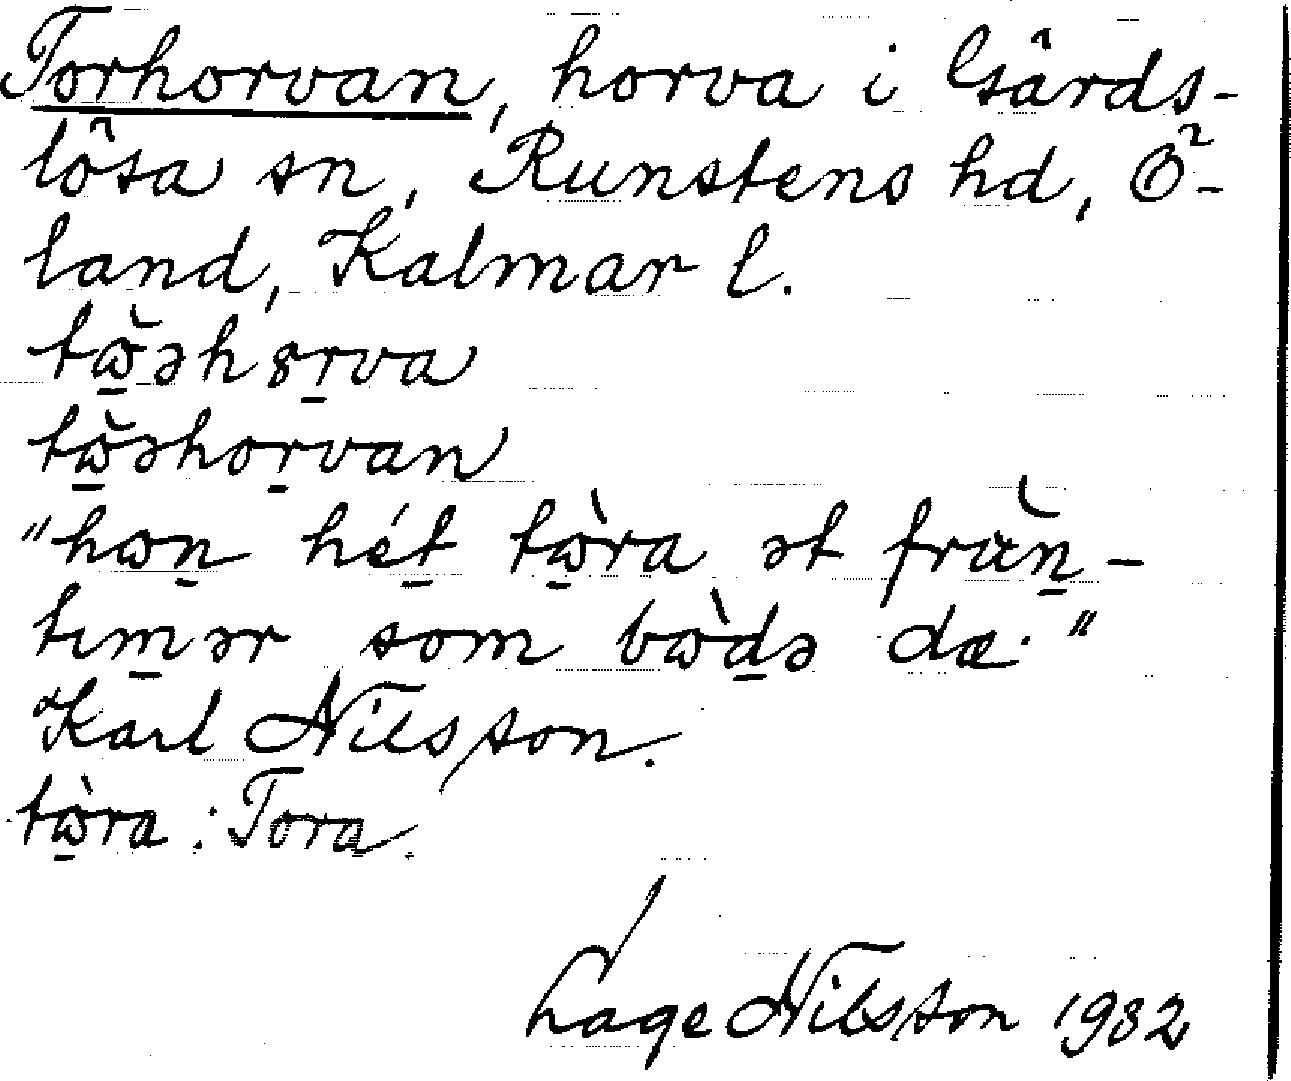 Torhorvan, horva i Gärds-
lösa sn, Runstens hd, Ö-
land, Kalmar l.
tὼ̠əh8r̠va
tὼ̠əhor̠van
"hωn̠ hét̠ tὼ̠ra ət fràn̠-
tım̠ər som bωd̠̀ə dæ·"
Karl Nilsson.
tὼ̠ra : Tora.
Lage Nilsson 1932